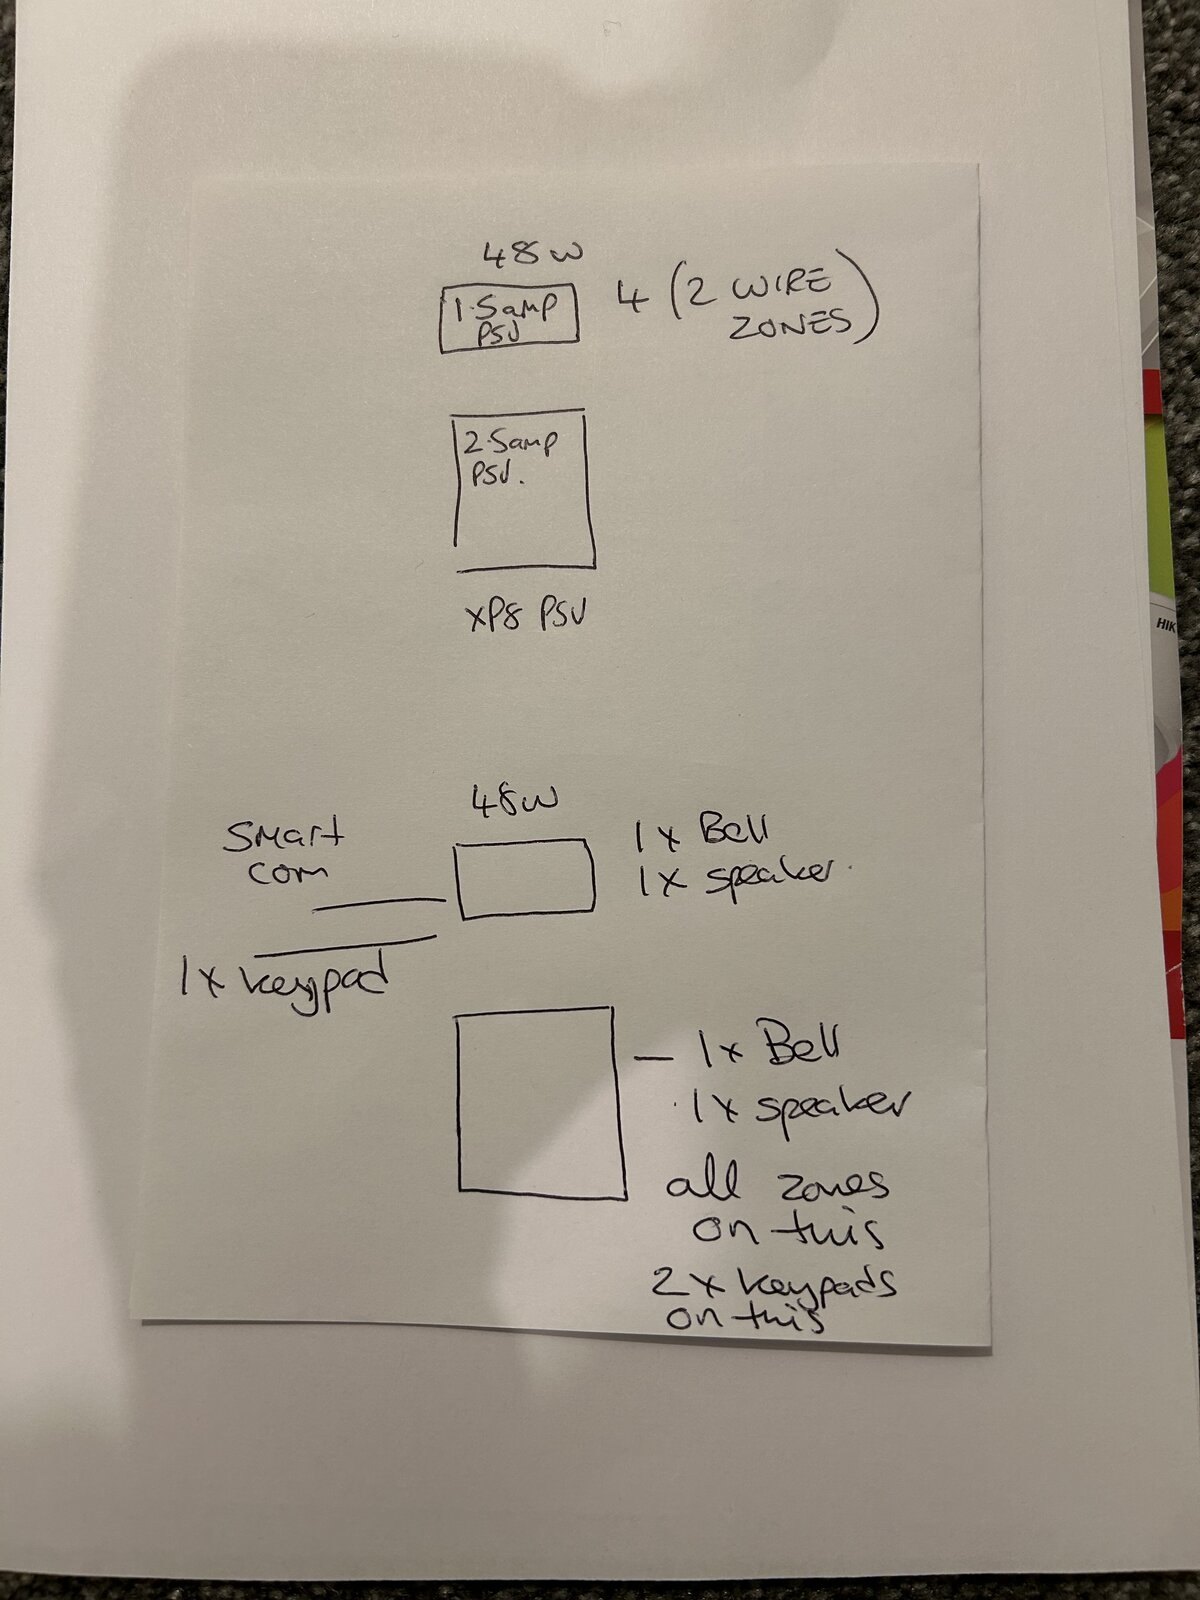 48w
1.5amp
PSU
4 (2 WIRE
ZONES)
2.5amp
PSU.
XP8 PSU
48w
Smart
com
1x Bell
1x speaker.
1x keypad
— 1x Bell
1x speaker
all zones
on this
2x keypads
on this
HIK